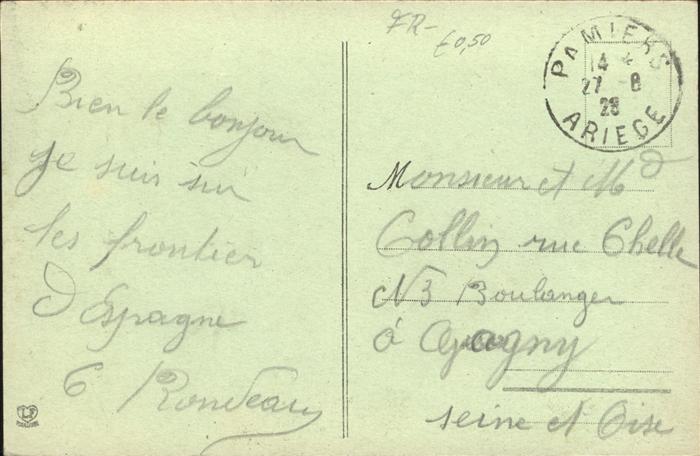 FR-
£0,50
PAMIERS
14 *
27 -8
28
ARIEGE
Bien le bonjour
je suis sur
les frontier
D'Espagne
Rondeau
Monsieur et Md
Collin rue Chelle
N3 Boulanger
á Gagny
Seine et Oise